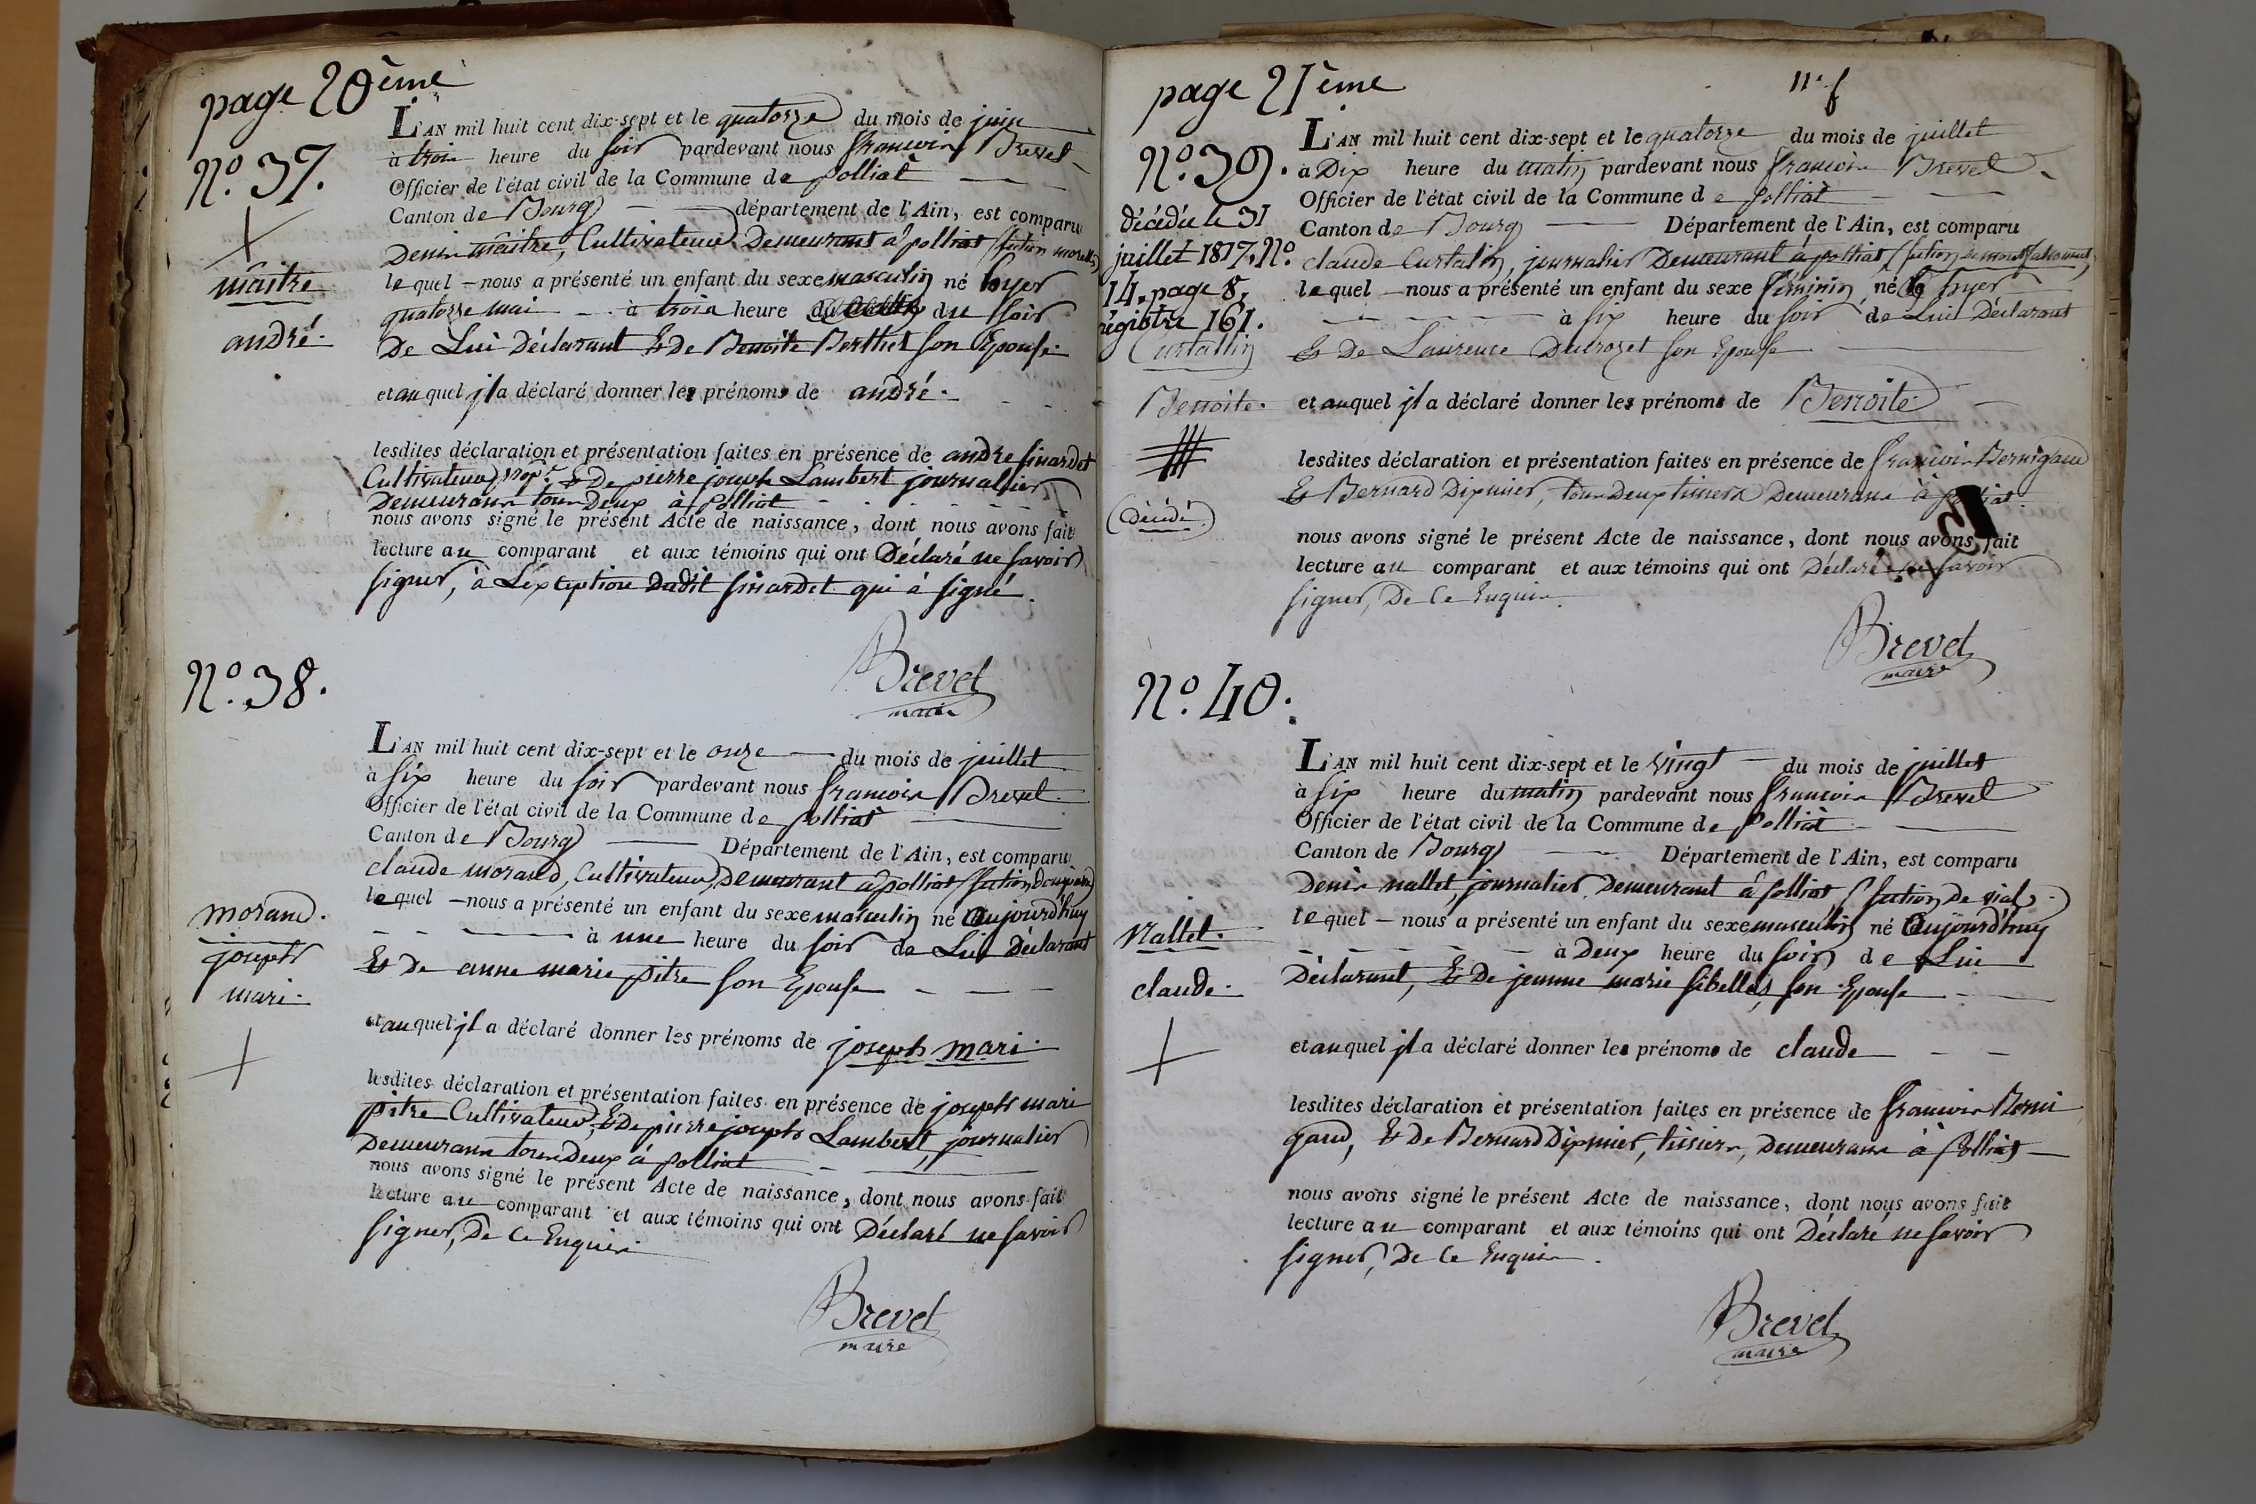 page 20ème
N.º 37.
maitre
andré.
L'AN mil huit cent dix-sept et le quatorze du mois de juin
à trois heure du soir pardevant nous françois Brevet
Officier de l'état civil de la Commune de polliat
Canton de Bourg département de l'Ain, est comparu
Denis maitre, Cultivateur Demeurant à polliat (section
lequel nous a présenté un enfant du sexe masculin né hyer
quatorze mai à trois heure du soir
De Lui Déclarant & De Benoite Berthet son Epouse
et auquel jl a déclaré donner les prénoms de andré.
lesdites déclaration et présentation faites en présence de andre sinardet
Cultivateur prop.re & De pierre joseph Lambert journallier
Demeurans tous Deux à polliat
nous avons signé le présent Acte de naissance, dont nous avons fait
lecture au comparant et aux témoins qui ont Déclaré ne savoir
signer, à L'exception Dudit sinardet qui à signé.
Brevet
maire
N.º 38.
morand.
joseph
mari.
L'AN mil huit cent dix-sept et le onze du mois de juillet
à six heure du soir pardevant nous françois Brevet
Officier de l'état civil de la Commune de polliat
Canton de Bourg Département de l'Ain, est comparu
claude morand, Cultivateur, Demeurant à polliat (section
lequel nous a présenté un enfant du sexe masculin né aujourd'huy
à une heure du soir de Lui Déclarant
& De anne marie pitre son Epouse
et auquel jl a déclaré donner les prénoms de joseph mari.
lesdites déclaration et présentation faites en présence de joseph mari
pitre Cultivateur, & De pierre joseph Lambert, journalier
Demeurans tous Deux à polliat
nous avons signé le présent Acte de naissance, dont nous avons fait
lecture au comparant et aux témoins qui ont Déclaré ne savoir
signer, De Ce Enquis
Brevet
maire
page 21ème
N.º 39.
décédée le 31
juillet 1817. N.º
14. page 8,
régistre 161.
Curtallin
Benoite.
(décédé)
L'AN mil huit cent dix-sept et le quatorze du mois de juillet
à Dix heure du matin pardevant nous françois Brevet
Officier de l'état civil de la Commune de polliat
Canton de Bourg Département de l'Ain, est comparu
claude Curtalin, journalier Demeurant à polliat (section
lequel nous a présenté un enfant du sexe féminin né hyer
à six heure du soir de Lui Déclarant
& De Laurence Ducrozet son Epouse
et auquel jl a déclaré donner les prénoms de Benoite.
lesdites déclaration et présentation faites en présence de françois Bernigaud
& Bernard Dixmier, tous Deux tissiers Demeurans à polliat.
nous avons signé le présent Acte de naissance, dont nous avons fait
lecture au comparant et aux témoins qui ont Déclaré ne savoir
signer, De Ce Enquis.
Brevet
maire
N.º 40.
Nallet.
claude.
L'AN mil huit cent dix-sept et le vingt du mois de juillet
à six heure du matin pardevant nous françois Brevet
Officier de l'état civil de la Commune de polliat
Canton de Bourg Département de l'Ain, est comparu
Denis nallet, journalier Demeurant à polliat (section De vial)
lequel nous a présenté un enfant du sexe masculin né aujourd'huy
à Deux heure du soir de Lui
Déclarant, & De jeanne marie sibellas, son Epouse
et auquel jl a déclaré donner les prénoms de claude
lesdites déclaration et présentation faites en présence de françois Berni
gaud, & De Bernard Dixmier, tissiers, Demeurans à polliat
nous avons signé le présent Acte de naissance, dont nous avons fait
lecture au comparant et aux témoins qui ont Déclaré ne savoir
signer, De Ce Enquis.
Brevet
maire